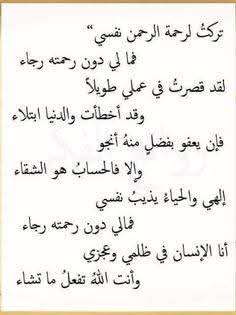 تركتُ لرحمة الرحمن نفسي“
فما لي دون رحمته رجاء
لقد قصرتُ في عملي طويلاً
وقد أخطأت والدنيا ابتلاء
فإن يعفو بفضلٍ منهُ أنجو
وإلا فالحسابُ هو الشقاء
إلهي والحياءُ يذيبُ نفسي
فمالي دون رحمته رجاء
أنا الإنسان في ظلمي وعجزي
وأنت اللهُ تفعلُ ما تشاء